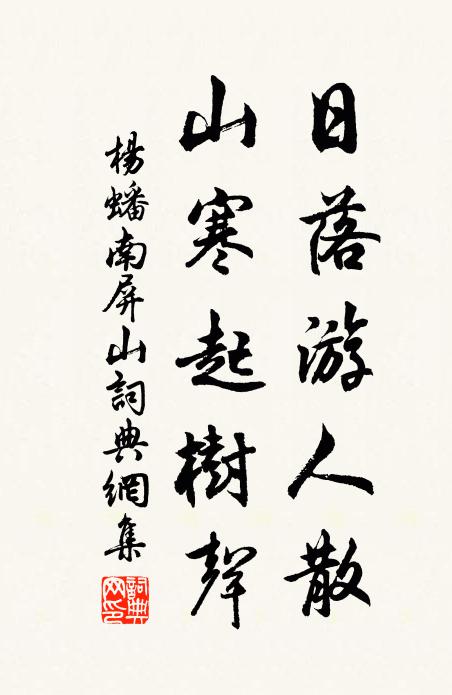 日落游人散
山寒起樹聲
楊蟠南屏山詞典網集
詞典網印